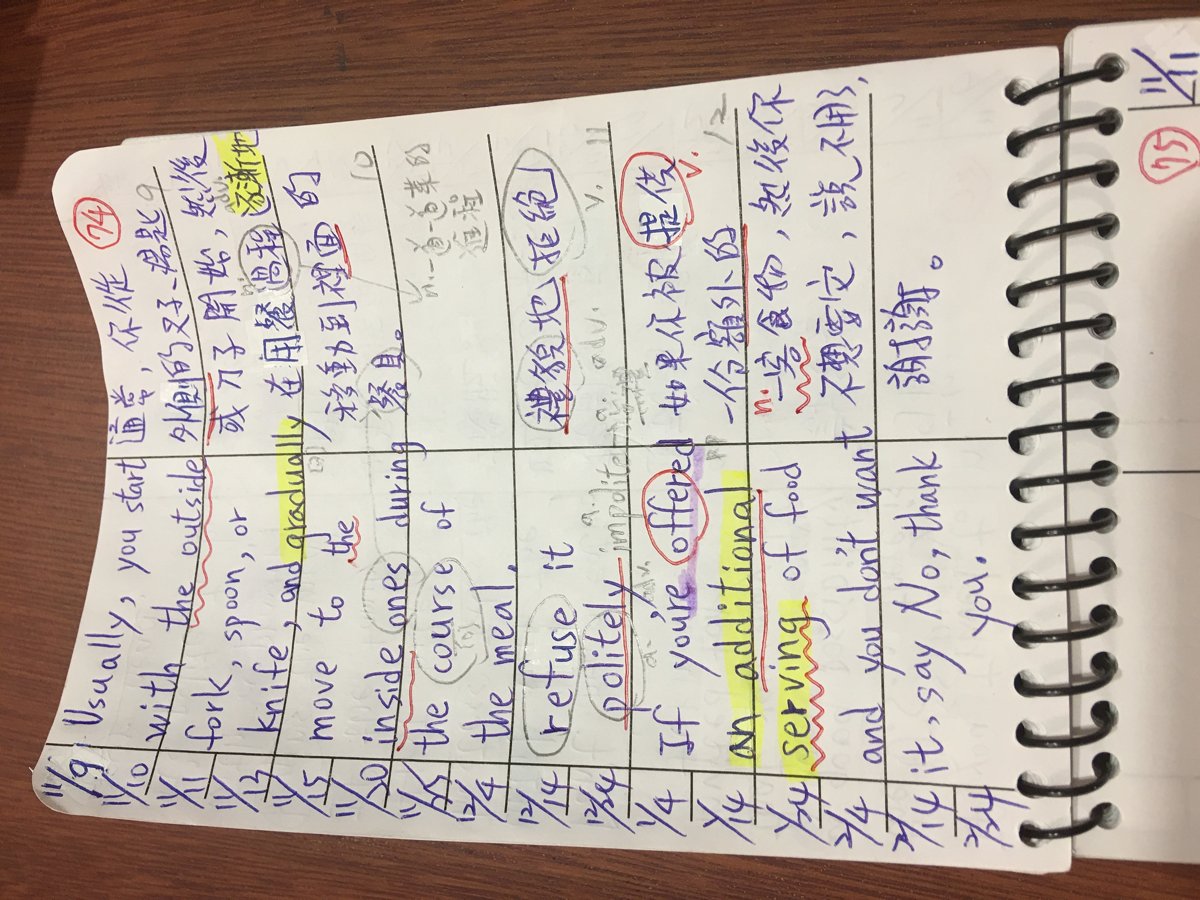 74
11/9
11/10
11/11
11/13
11/15
11/20
11/25
12/4
12/14
12/24
1/4
1/14
1/24
2/4
2/14
2/24
Usually, you start
with the outside
fork, spoon, or
knife, and gradually
move to the
inside ones during
the course of
the meal.
refuse it
politely impolite
a. adv. a.
If you're offered
an additional
serving of food
and you don't want
it, say No, thank
you.
通常，你從
外側的叉子、湯匙 9
或刀子開始，然後
adv.
在用餐過程逐漸地
移動到裡面的
餐具。 10
n. 一道一道菜的
進程
禮貌地 拒絕
adv. v. 11
如果你被提供
v.
一份額外的 12
n. 一客食物，然後你
不想要它，說不用了，
謝謝。
75
11/11